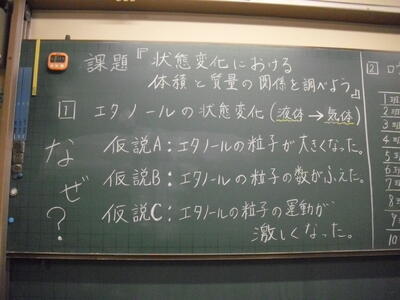 課題『状態変化における
体積と質量の関係を調べよう』
1 エタノールの状態変化(液体→気体)
なぜ?
仮説A:エタノールの粒子が大きくなった。
仮説B:エタノールの粒子の数がふえた。
仮説C:エタノールの粒子の運動が
激しくなった。
2 ロウ
1班
2班
3班
4
5
6
7
8
9
10